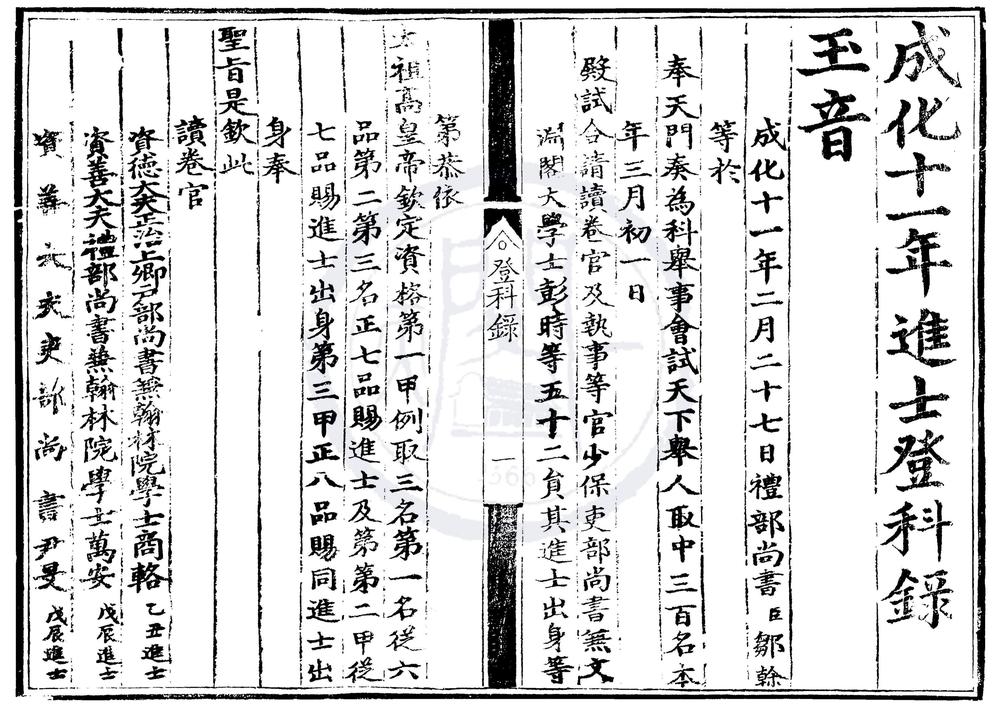 成化十一年進士登科錄
玉音
成化十一年二月二十七日禮部尚書臣鄒幹
等於
奉天門奏為科舉事會試天下舉人取中三百名本
年三月初一日
殿試合請讀卷官及執事等官少保吏部尚書兼文
淵閣大學士彭時等五十二員其進士出身等
登科錄
一
第恭依
太祖高皇帝欽定資格第一甲例取三名第一名從六
品第二第三名正七品賜進士及第第二甲從
七品賜進士出身第三甲正八品賜同進士出
身奉
聖旨是欽此
讀卷官
資德大夫正治上卿戶部尚書兼翰林院學士商輅 乙丑進士
資善大夫禮部尚書兼翰林院學士萬安 戊辰進士
資善大夫吏部尚書尹旻 戊辰進士